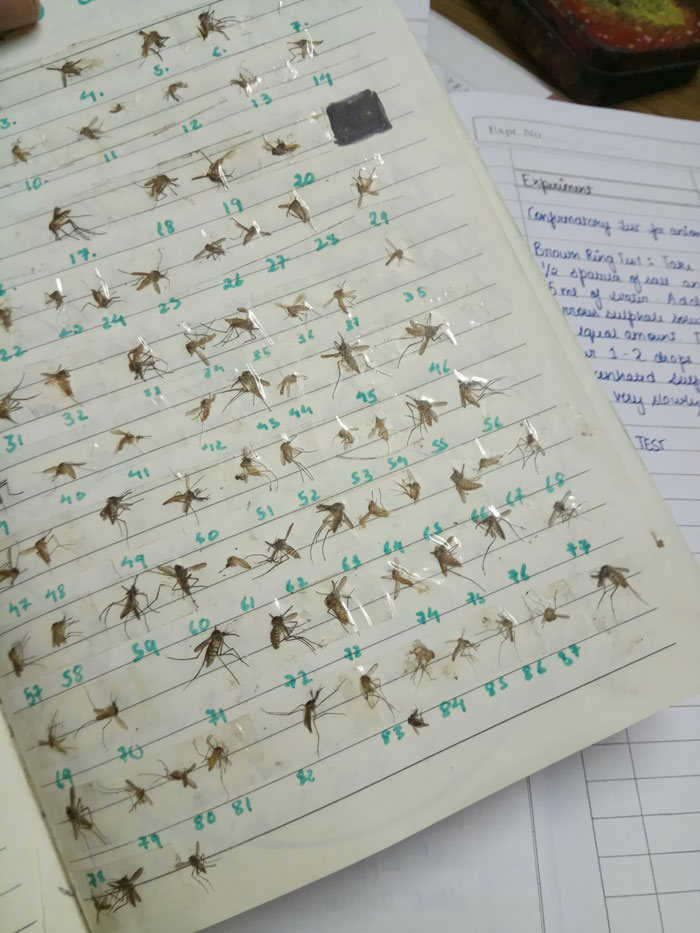 3. 4. 5. 6. 7.
10. 11 12 13 14
17. 18 19 20
22 23 24 25 26 27 28 29
31 32 33 34 35 36 37 38
40 41 42 43 44 45 46
47 48 49 50 51 52 53 54 55 56
57 58 59 60 61 62 63 64 65 66 67 68
69 70 71 72 73 74 75 76 77
78 79 80 81 82 83 84 85 86 87
Expt. No.
Experiment
Confirmatory test for anion
Brown Ring Test: Take
1/2 spatula of salt an
5 ml of water. Add
rrous sulphate solu
equal amount. T
1-2 drops
very slowly
TEST